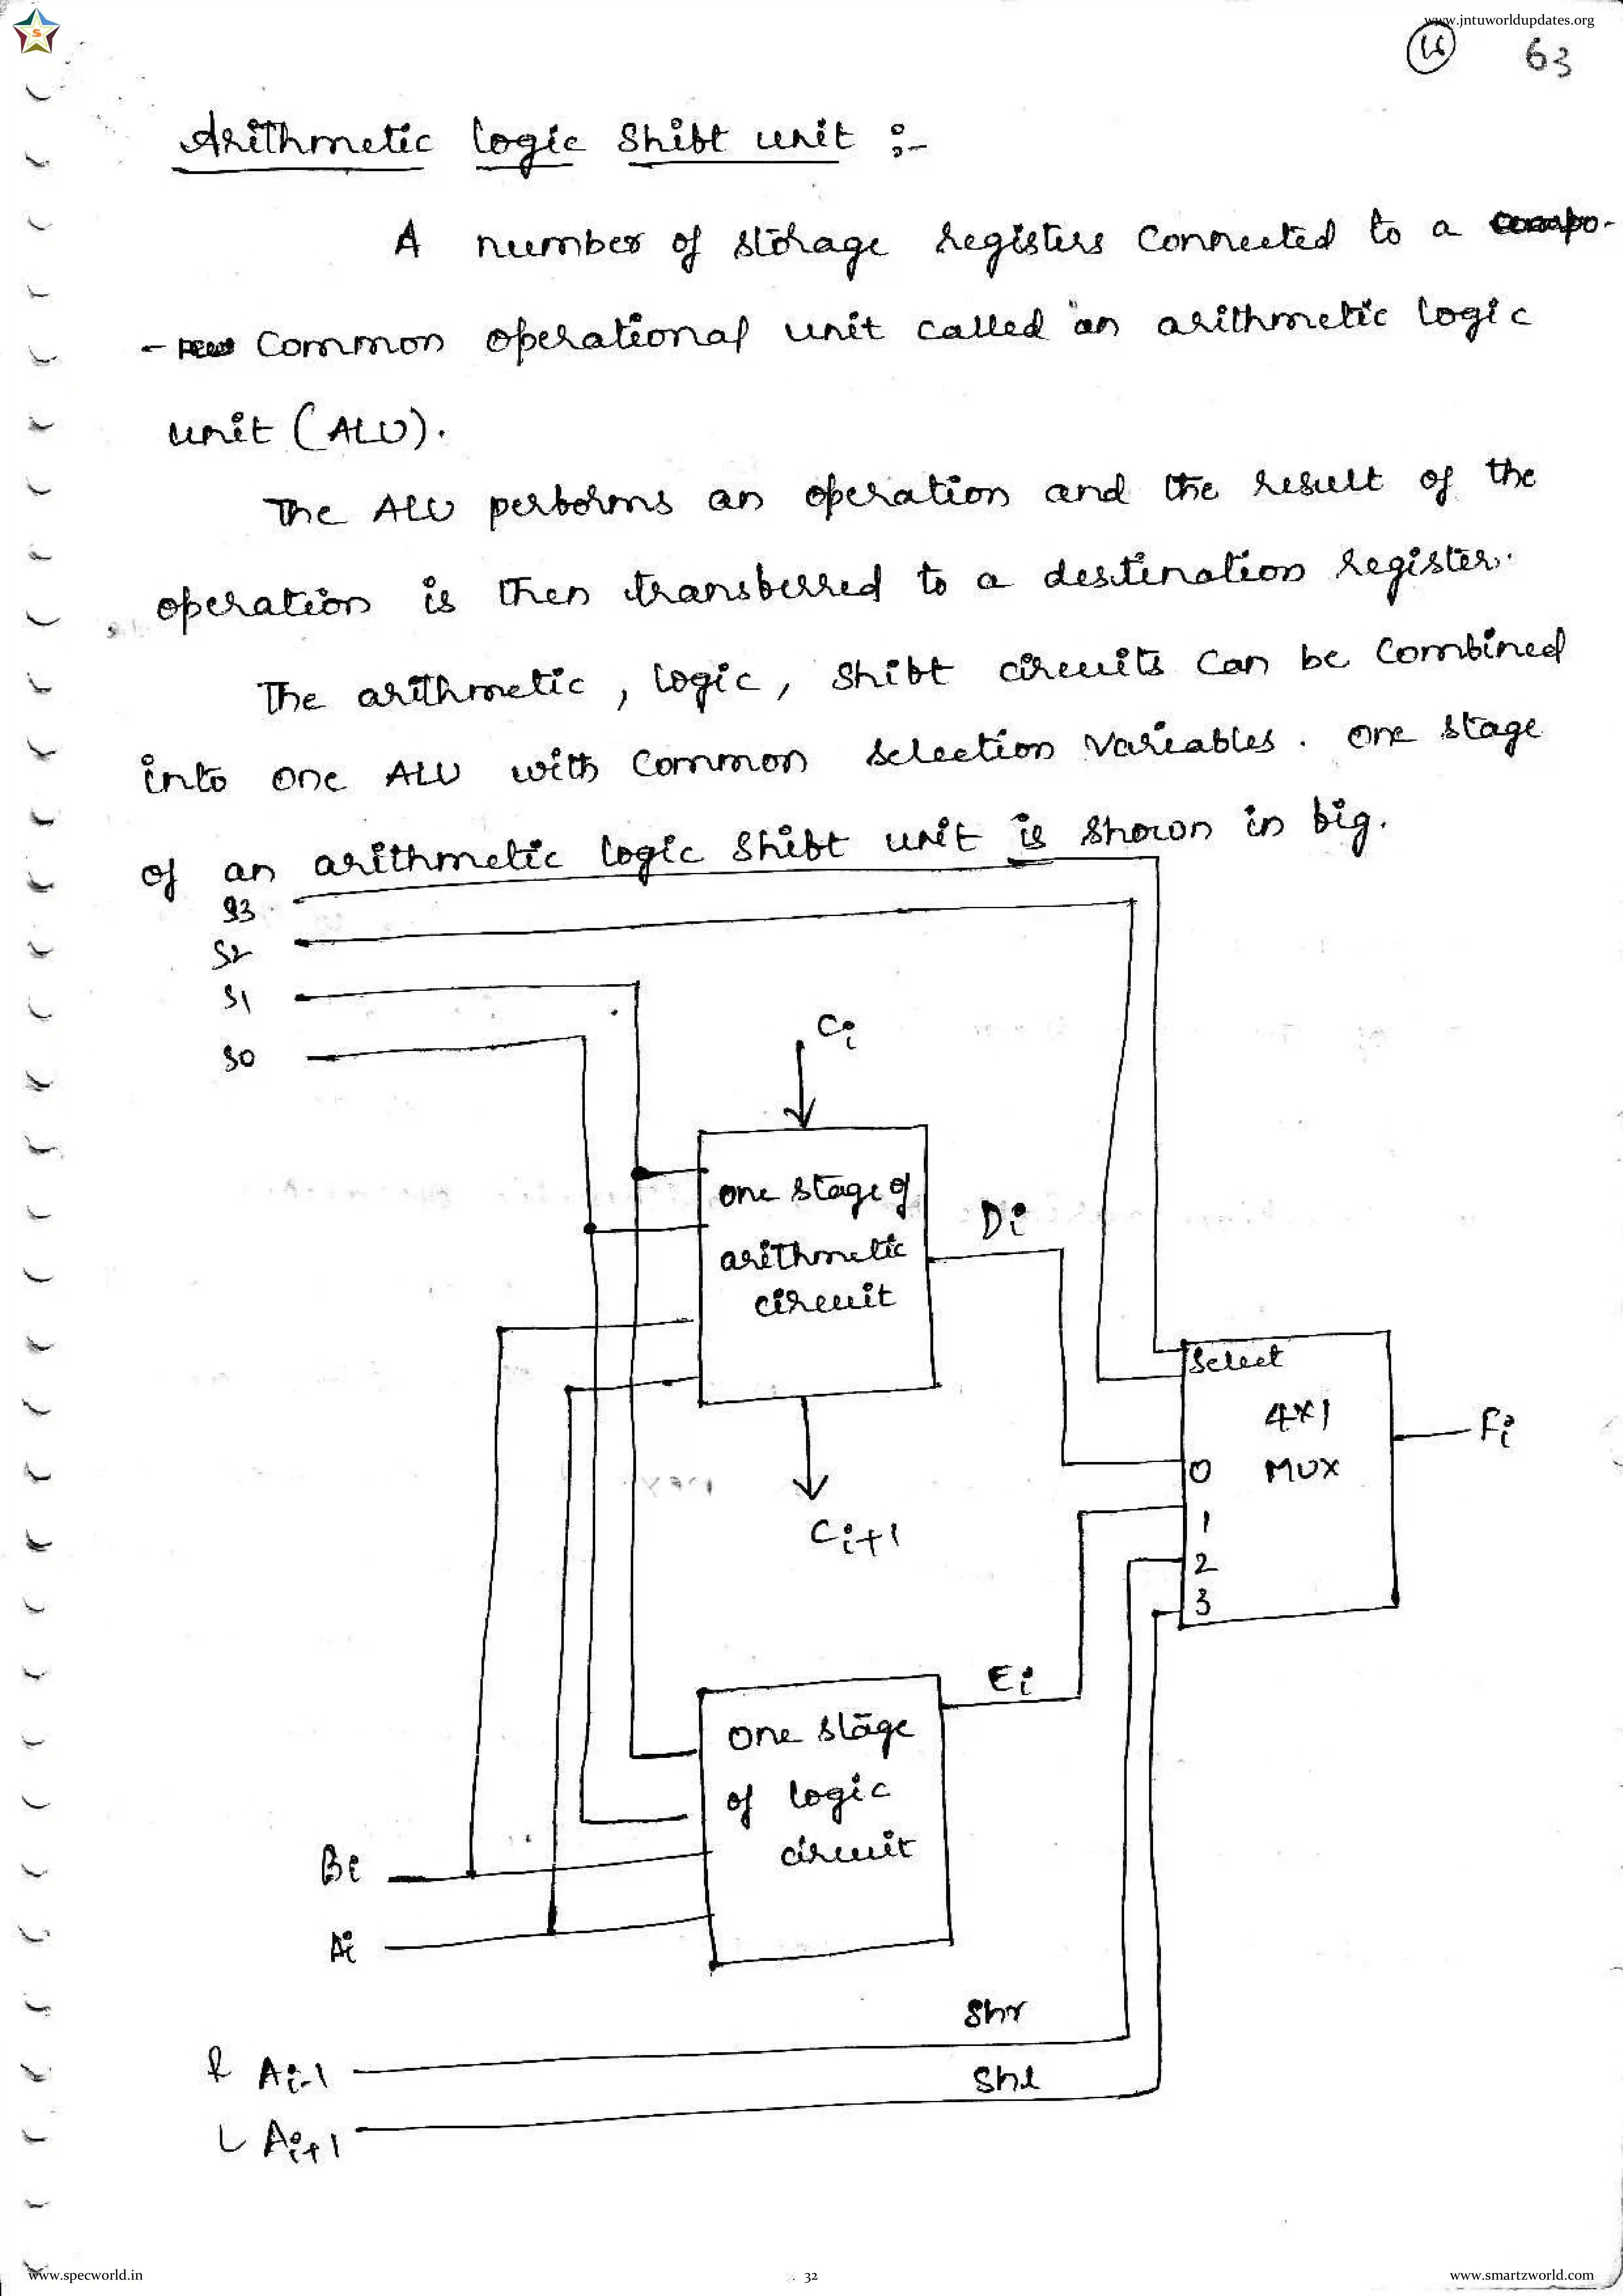 www.jntuworldupdates.org
63
Arithmetic logic shift unit :-
A number of storage registers connected to a compo-
-new common operational unit called an arithmetic logic
unit (ALU).
The ALU performs an operation and the result of the
operation is then transferred to a destination register.
The arithmetic, logic, shift circuits can be combined
into one ALU with common selection variables. one stage
of an arithmetic logic shift unit is shown in fig.
S3
S2
S1
S0
Ci
one stage of
arithmetic
circuit
Di
Select
4x1
MUX
0
1
2
3
Fi
Ci+1
Ei
one stage
of logic
circuit
Bi
Ai
Shr
R Ai-1
Shl
L Ai+1
www.specworld.in
32
www.smartzworld.com